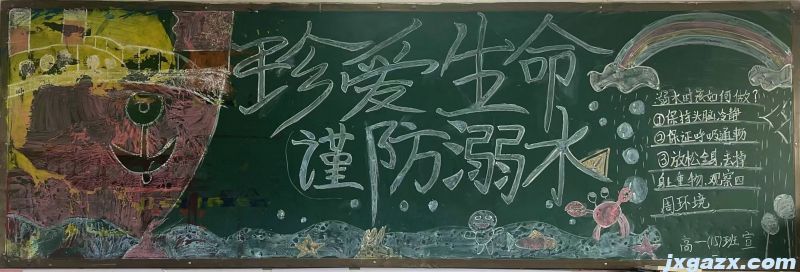 珍爱生命
谨防溺水
溺水时该如何做？
①保持头脑冷静
②保证呼吸通畅
③放松全身去掉
身上重物，观察四
周环境
高一(15)班宣
jxgazx.com